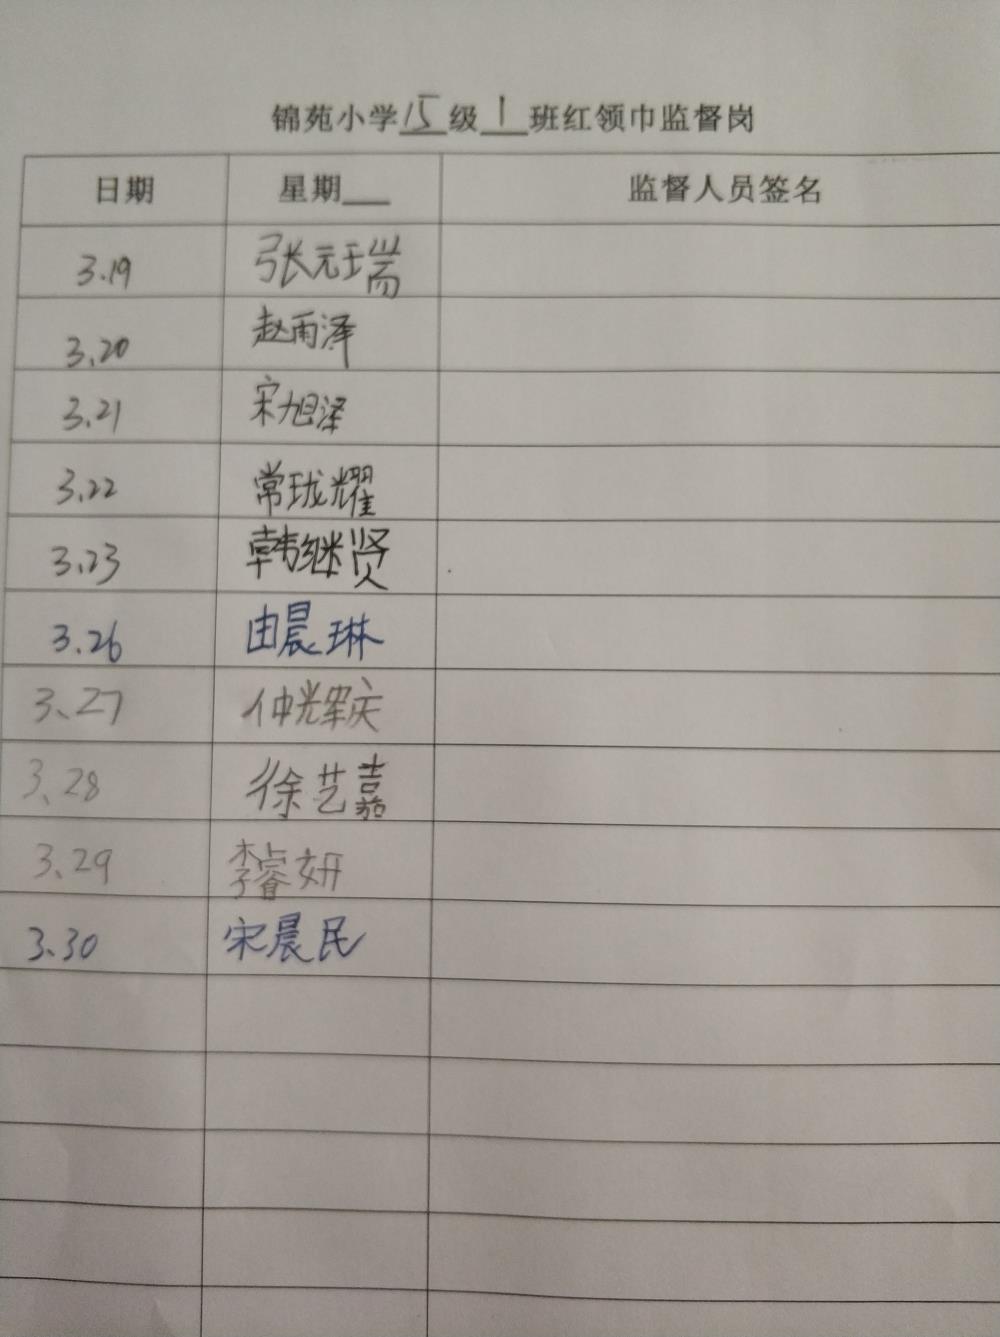 锦苑小学15级1班红领巾监督岗
日期 星期__ 监督人员签名
3.19 张元瑞
3.20 赵雨泽
3.21 宋旭泽
3.22 常珑耀
3.23 韩继贤
3.26 由晨琳
3、27 仲光军庆
3、28 徐艺嘉
3、29 李睿妍
3、30 宋晨民